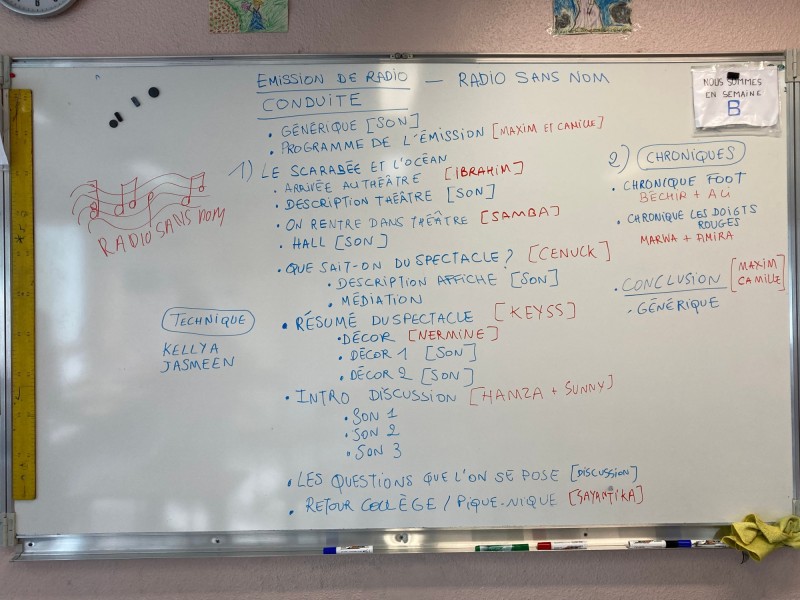 EMISSION DE RADIO — RADIO SANS NOM
CONDUITE
NOUS SOMMES
EN SEMAINE
B
• GÉNÉRIQUE [SON]
• PROGRAMME DE L'ÉMISSION [MAXIM ET CAMILLE]
1) LE SCARABÉE ET L'OCÉAN
• ARRIVÉE AU THÉÂTRE [IBRAHIM]
• DESCRIPTION THÉÂTRE [SON]
• ON RENTRE DANS THÉÂTRE [SAMBA]
• HALL [SON]
• QUE SAIT-ON DU SPECTACLE? [CENUCK]
• DESCRIPTION AFFICHE [SON]
• MÉDIATION
• RÉSUMÉ DU SPECTACLE [KEYSS]
• DÉCOR [NERMINE]
• DÉCOR 1 [SON]
• DÉCOR 2 [SON]
• INTRO DISCUSSION [HAMZA + SUNNY]
• SON 1
• SON 2
• SON 3
• LES QUESTIONS QUE L'ON SE POSE [DISCUSSION]
• RETOUR COLLÈGE / PIQUE-NIQUE [SAYANTIKA]
2) CHRONIQUES
• CHRONIQUE FOOT
BÉCHIR + ALI
• CHRONIQUE LES DOIGTS
ROUGES
MARWA + AMIRA
• CONCLUSION [MAXIM
CAMILLE]
• GÉNÉRIQUE
RADIO SANS NOM
TECHNIQUE
KELLYA
JASMEEN